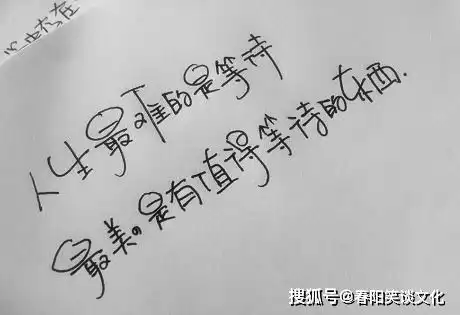 人生最难的是等待
最美的是有值得等待的东西.
搜狐号@春阳笑谈文化